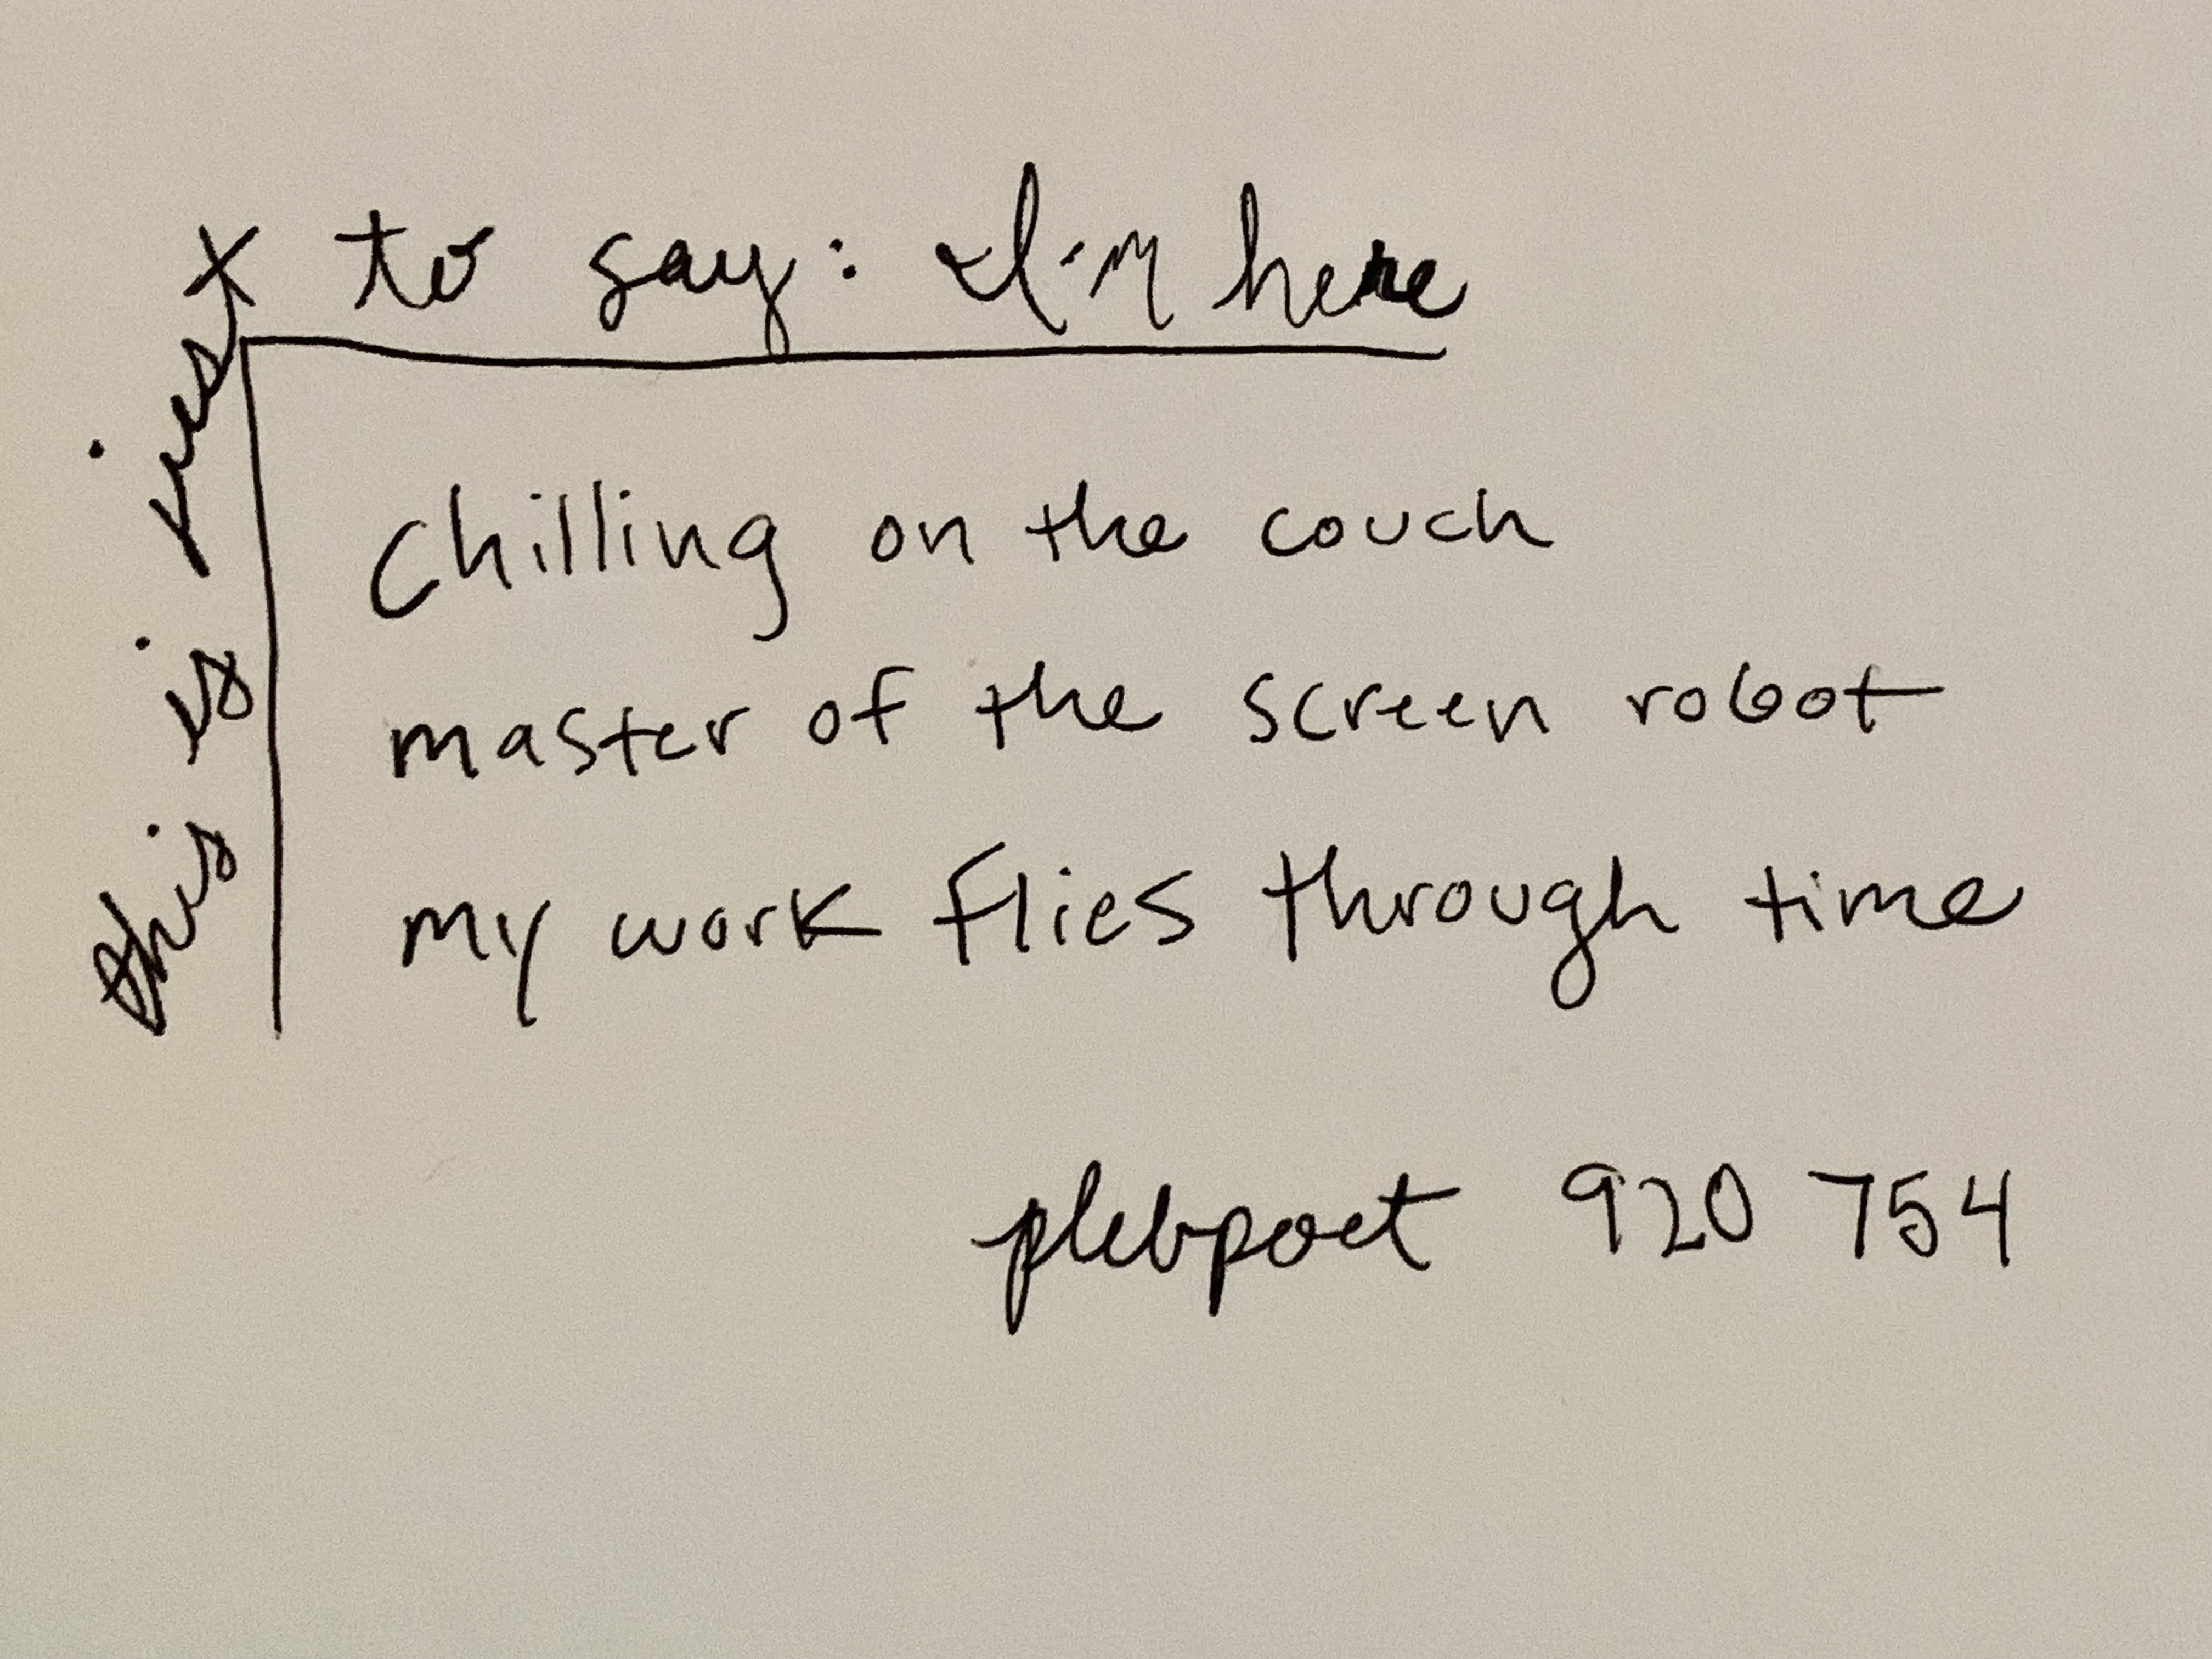 this is just to say: I'm here
Chilling on the couch
master of the screen robot
my work flies through time
plebpoet 920 754